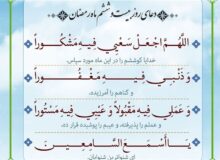 دعای روز بیست و ششم ماه رمضان
اللّهُمَّ اجْعَلْ سَعْیی فیهِ مَشْکُوراً
خدایا کوششم را در این ماه مورد سپاس،
وَ ذَنْبی فیهِ مَغْفُوراً
و گناهم را آمرزیده،
وَ عَمَلی فیهِ مَقْبُولاً وَ عَیْبی فیهِ مَسْتُوراً
و عملم را پذیرفته، و عیبم را پوشیده قرار ده،
یا أَسْمَعَ السّامِعینَ
ای شنواترین شنوایان.